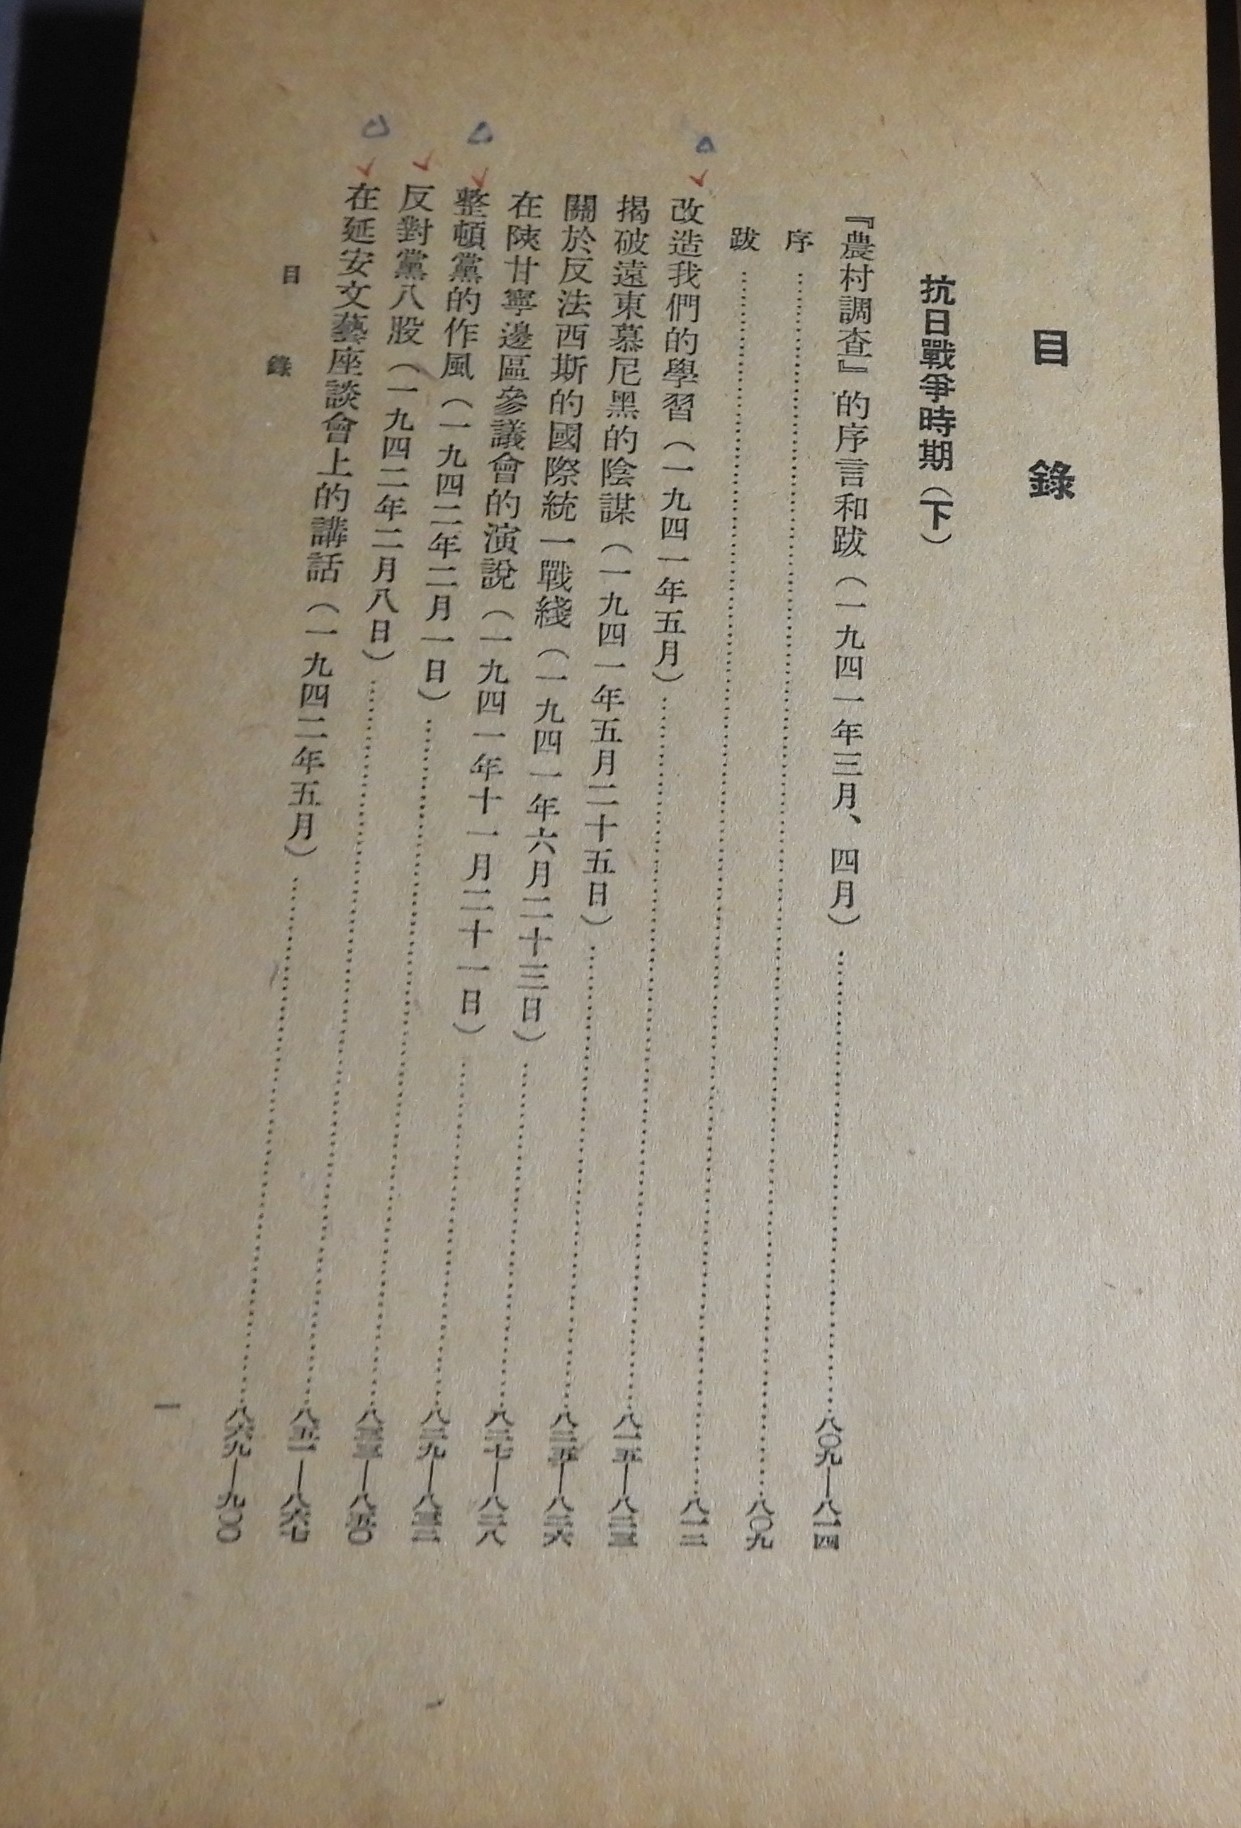 目錄
抗日戰爭時期（下）
『農村調查』的序言和跋（一九四一年三月、四月）……八〇九—八一四
序……八〇九
跋……八一二
改造我們的學習（一九四一年五月）……八一五—八二三
揭破遠東慕尼黑的陰謀（一九四一年五月二十五日）……八二五—八二六
關於反法西斯的國際統一戰綫（一九四一年六月二十三日）……八二七—八二八
在陝甘寧邊區參議會的演說（一九四一年十一月二十一日）……八二九—八三二
整頓黨的作風（一九四二年二月一日）……八三三—八五〇
反對黨八股（一九四二年二月八日）……八五一—八六七
在延安文藝座談會上的講話（一九四二年五月）……八六九—九〇〇
目錄
一